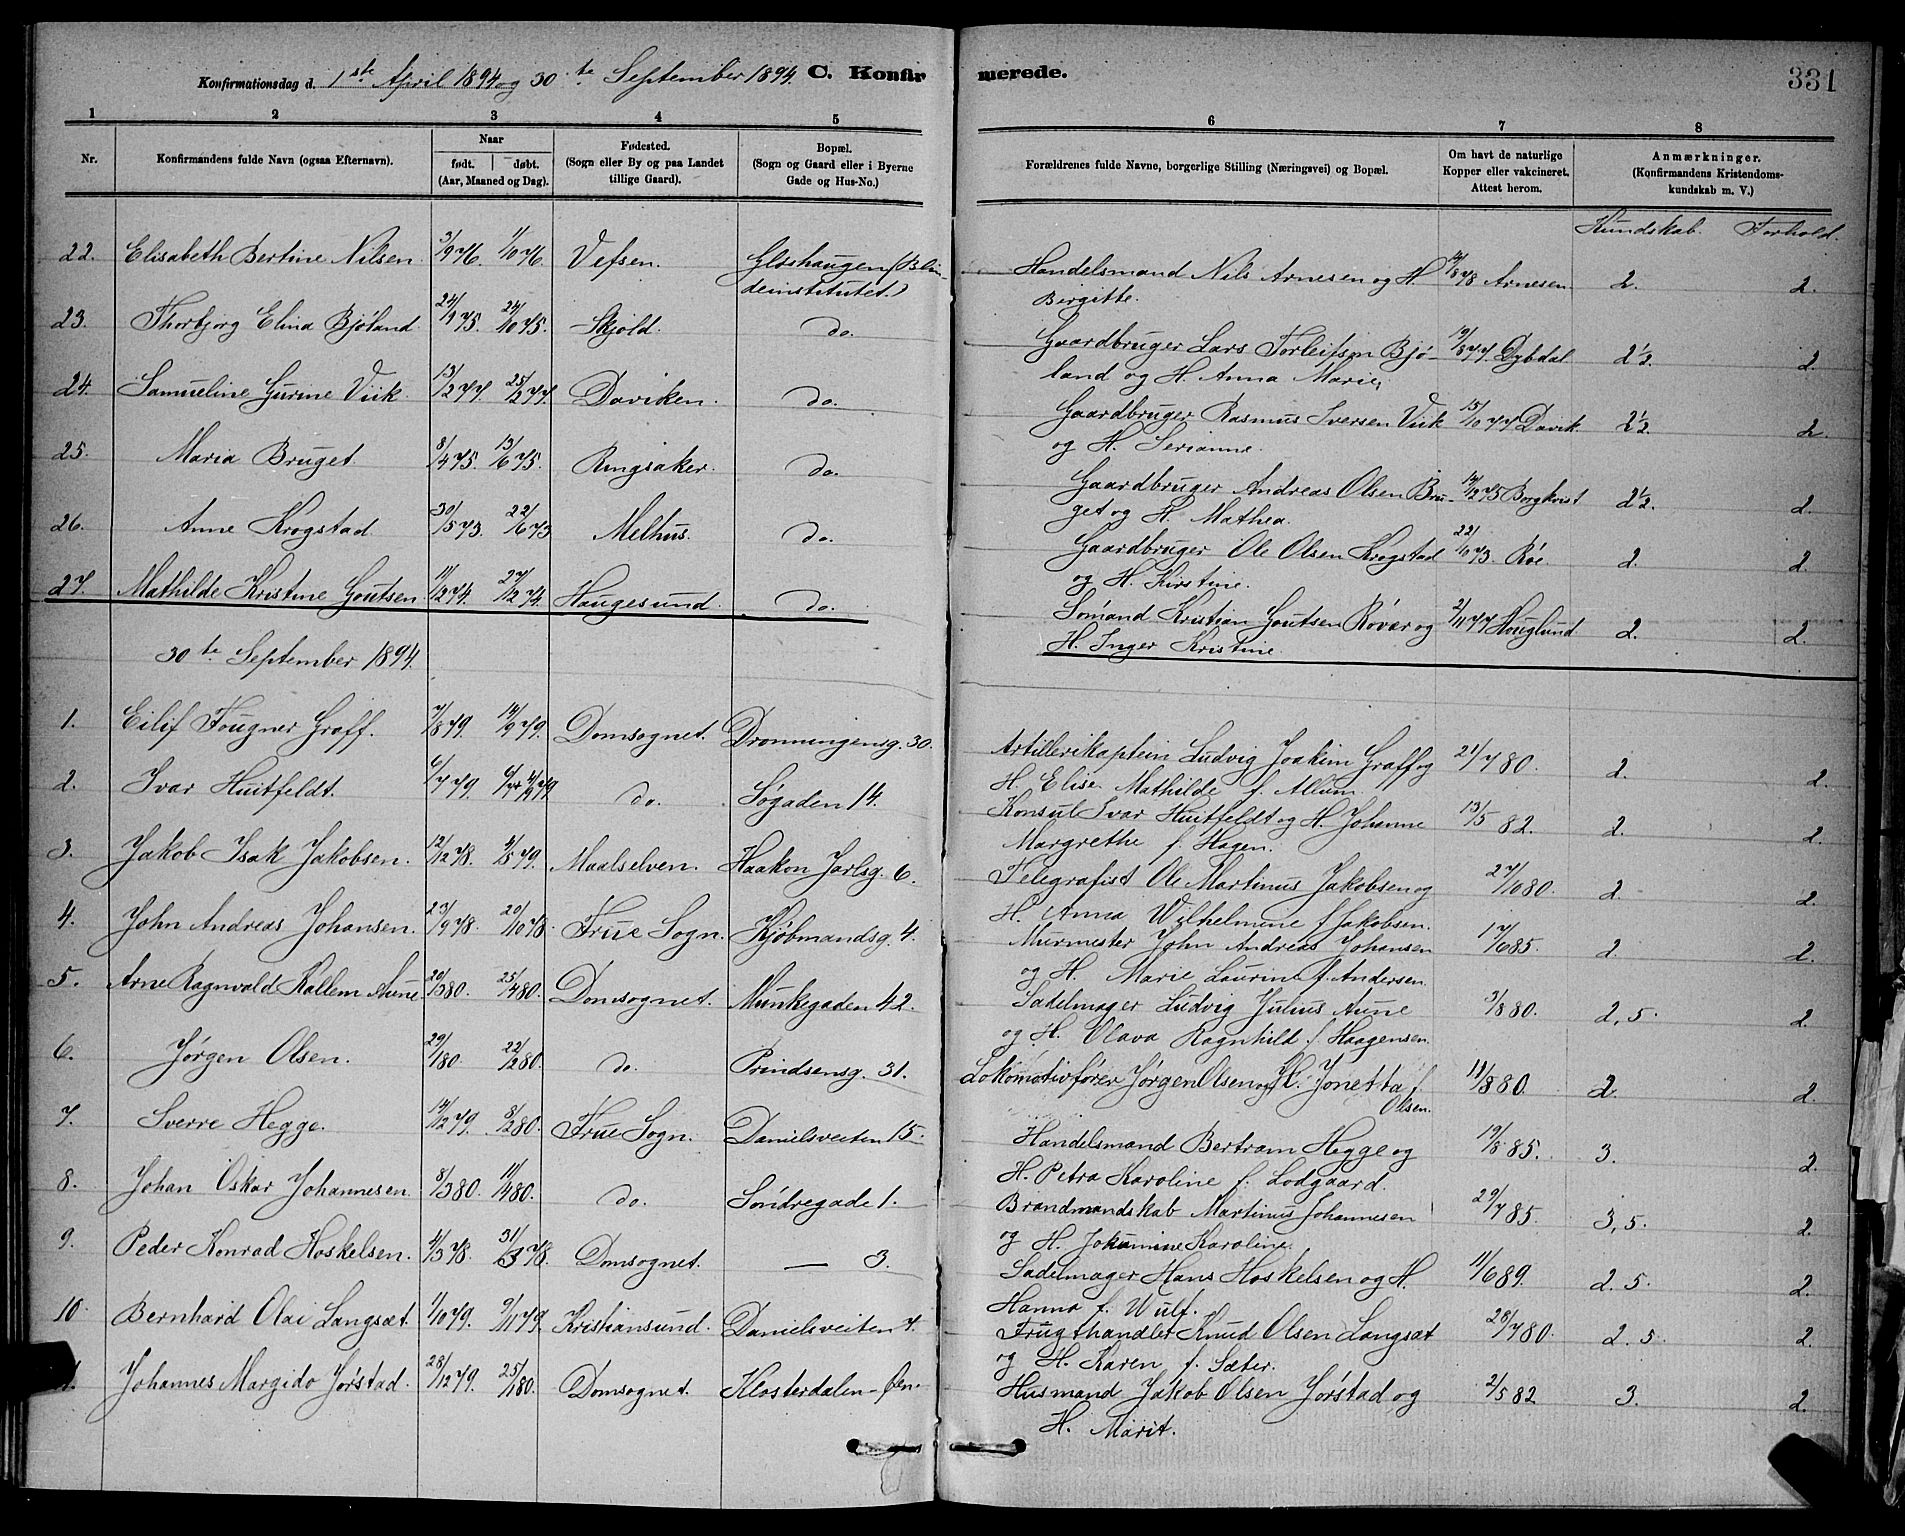 Konfirmationsdag d. 1ste April 1894 og 30te September 1894. C. Konfirmerede. 331
1 2 3 4 5 6 7 8
Nr. Konfirmandens fulde Navn (ogsaa Efternavn). Naar født. døbt. (Aar, Maaned og Dag). Fødested. (Sogn eller By og paa Landet tillige Gaard). Bopæl. (Sogn og Gaard eller i Byerne Gade og Hus-No.) Forældrenes fulde Navne, borgerlige Stilling (Næringsvei) og Bopæl. Om havt de naturlige Kopper eller vakcineret. Attest herom. Anmærkninger. (Konfirmandens Kristendomskundskab m. V.)
Kundskab. Forhold.
22. Elisabeth Bertine Nilsen. 3/9 76. 1/10 76. Vefsen. Gløshaugen (Blin- Handelsmand Nils Arnesen og H. 14/8 78 Arnesen 2. 2.
deinstitutet.) Birgitte.
23. Thorbjørg Elina Bjøland. 24/9 75. 24/10 75. Skjold. do. Gaardbruger Lars Torleifsen Bjø- 19/8 77 Dybdal 2½. 2.
land og H. Anna Marie.
24. Samueline Gurine Viik. 13/2 77. 25/2 77. Daviken. do. Gaardbruger Rasmus Iversen Viik 15/10 77 Davik. 2½. 2.
og H. Serianne.
25. Maria Bruget. 8/4 75. 13/6 75. Ringsaker. do. Gaardbruger Andreas Olsen Bru- 14/12 75 Borgkvist 2½. 2.
get og H. Mathea.
26. Anne Krogstad. 30/5 73. 22/6 73 Melhus. do. Gaardbruger Ole Olsen Krogstad 22/10 73. Røe. 2. 2.
og H. Kirstine.
27. Mathilde Kristine Goutsen. 11/12 74. 27/12 74. Haugesund. do. Sømand Kristian Goutsen Røvær og 2/11 77 Houglund 2. 2.
H. Inger Kristine.
30te September 1894.
1. Eilif Fougner Graff. 7/8 79. 14/9 79. Domsognet. Dronningensg. 30. Artillerikaptein Ludvig Joakim Graff og 21/7 80. 2. 2.
H. Elise Mathilde f. Allum.
2. Ivar Huitfeldt. 6/7 79. do. Søgaden 14. Konsul Ivar Huitfeldt og H. Johanne 13/5 82. 2. 2.
Margrethe f. Hagen.
3. Jakob Isak Jakobsen. 12/12 78. 4/5 79. Maalselven. Haakon Jarlsg. 6. Telegrafist Ole Martinus Jakobsen og 27/10 80. 2. 2.
H. Anna Wilhelmine f. Jakobsen.
4. John Andreas Johansen. 23/9 78. 20/10 78. Frue Sogn. Kjøbmandsg. 4. Murmester John Andreas Johansen 17/6 85. 2. 2.
og H. Marie Laurine f. Andersen.
5. Arne Ragnvald Kallem Aune 20/3 80. 25/4 80. Domsognet. Munkegaden 42. Sadelmager Ludvig Julius Aune 3/8 80. 2,5. 2.
og H. Olava Ragnhild f. Haagensen.
6. Jørgen Olsen. 29/1 80. 22/2 80. do. Prindsensg. 31. Lokomotivfører Jørgen Olsen og H. Jonetta f. 19/8 80. 2. 2.
Olsen.
7. Sverre Hegge. 14/12 79. 8/2 80. Frue Sogn. Danielsveiten 15. Handelsmand Bertram Hegge og 19/8 85. 3. 2.
H. Petra Karoline f. Lodgaard.
8. Johan Oskar Johannesen. 8/3 80. 11/4 80. do. Søndregade 1. Brandmandskab Martinus Johannesen 29/7 85. 3,5. 2.
og H. Jokumine Karoline.
9. Peder Konrad Hoskelsen. 4/3 78. 31/3 78. Domsognet. — 3. Sadelmager Hans Hoskelsen og H. 11/6 89. 2.5. 2.
Hanna f. Wulf.
10. Bernhard Olai Langsæt. 1/10 79. 9/11 79. Kristiansund. Danielsveiten 7. Frugthandler Knud Olsen Langsæt 28/7 80. 2.5. 2.
og H. Karen f. Sæter.
Johannes Margido Jørstad. 28/12 79. 25/1 80. Domsognet. Klosterdalen-Øen. Husmand Jakob Olsen Jørstad og 2/5 82 3. 2.
H. Marit.